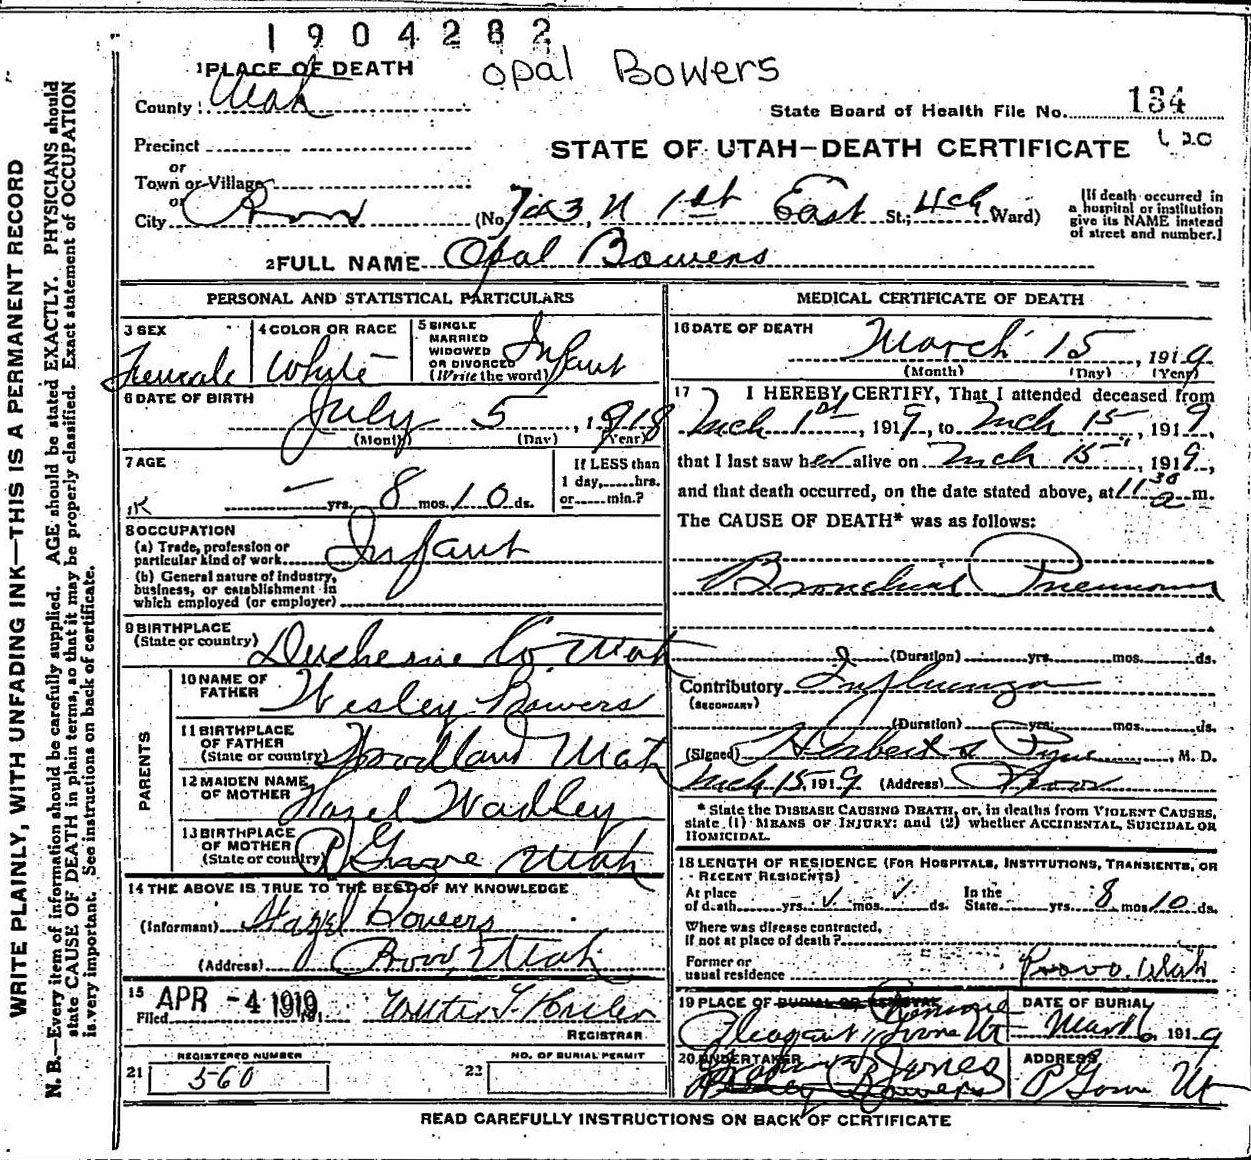 1904282
Opal Bowers
1 PLACE OF DEATH
County Utah
State Board of Health File No. 134
Precinct
or
Town or Village
or
City Provo
STATE OF UTAH—DEATH CERTIFICATE
(No. N 1st East St.; 4th Ward)
[If death occurred in
a hospital or institution
give its NAME instead
of street and number.]
2 FULL NAME Opal Bowers
PERSONAL AND STATISTICAL PARTICULARS
3 SEX
Female
4 COLOR OR RACE
White
5 SINGLE
MARRIED
WIDOWED
OR DIVORCED
(Write the word)
Infant
6 DATE OF BIRTH
July 5, 1918
(Month) (Day) (Year)
7 AGE
— yrs. 8 mos. 10 ds.
If LESS than
1 day, hrs.
or min.?
8 OCCUPATION
(a) Trade, profession or
particular kind of work Infant
(b) General nature of industry,
business, or establishment in
which employed (or employer)
9 BIRTHPLACE
(State or country) Duchesne Co. Utah
PARENTS
10 NAME OF
FATHER Wesley Bowers
11 BIRTHPLACE
OF FATHER
(State or country) Woodland Utah
12 MAIDEN NAME
OF MOTHER Hazel Wadley
13 BIRTHPLACE
OF MOTHER
(State or country) P Grove Utah
14 THE ABOVE IS TRUE TO THE BEST OF MY KNOWLEDGE
(Informant) Hazel Bowers
(Address) Provo, Utah
15
Filed APR -4 1919, 191
REGISTRAR
REGISTERED NUMBER
21 560
NO. OF BURIAL PERMIT
22
MEDICAL CERTIFICATE OF DEATH
16 DATE OF DEATH
March 15, 1919
(Month) (Day) (Year)
17 I HEREBY CERTIFY, That I attended deceased from
Mch 1st, 1919, to Mch 15, 1919,
that I last saw her alive on Mch 15", 1919,
and that death occurred, on the date stated above, at 11 30 a m.
The CAUSE OF DEATH* was as follows:
Bronchial Pneumonia
(Duration) yrs. mos. ds.
Contributory Influenza
(SECONDARY)
(Duration) yrs. mos. ds.
(Signed) Herbert S Pyne, M. D.
Mch 15, 1919 (Address) Provo
* State the DISEASE CAUSING DEATH, or, in deaths from VIOLENT CAUSES,
state (1) MEANS OF INJURY; and (2) whether ACCIDENTAL, SUICIDAL OR
HOMICIDAL.
18 LENGTH OF RESIDENCE (FOR HOSPITALS, INSTITUTIONS, TRANSIENTS, OR
RECENT RESIDENTS)
At place
of death yrs. mos. ds.
In the
State yrs. 8 mos. 10 ds.
Where was disease contracted,
if not at place of death?
Former or
usual residence Provo. Utah
19 PLACE OF BURIAL OR REMOVAL
Pleasant Grove Ut
DATE OF BURIAL
Mar 16 1919
20 UNDERTAKER
Jones
Bowers
ADDRESS
P Grove Ut
READ CAREFULLY INSTRUCTIONS ON BACK OF CERTIFICATE
WRITE PLAINLY, WITH UNFADING INK—THIS IS A PERMANENT RECORD
N. B.—Every item of information should be carefully supplied. AGE should be stated EXACTLY. PHYSICIANS should
state CAUSE OF DEATH in plain terms, so that it may be properly classified. Exact statement of OCCUPATION
is very important. See instructions on back of certificate.